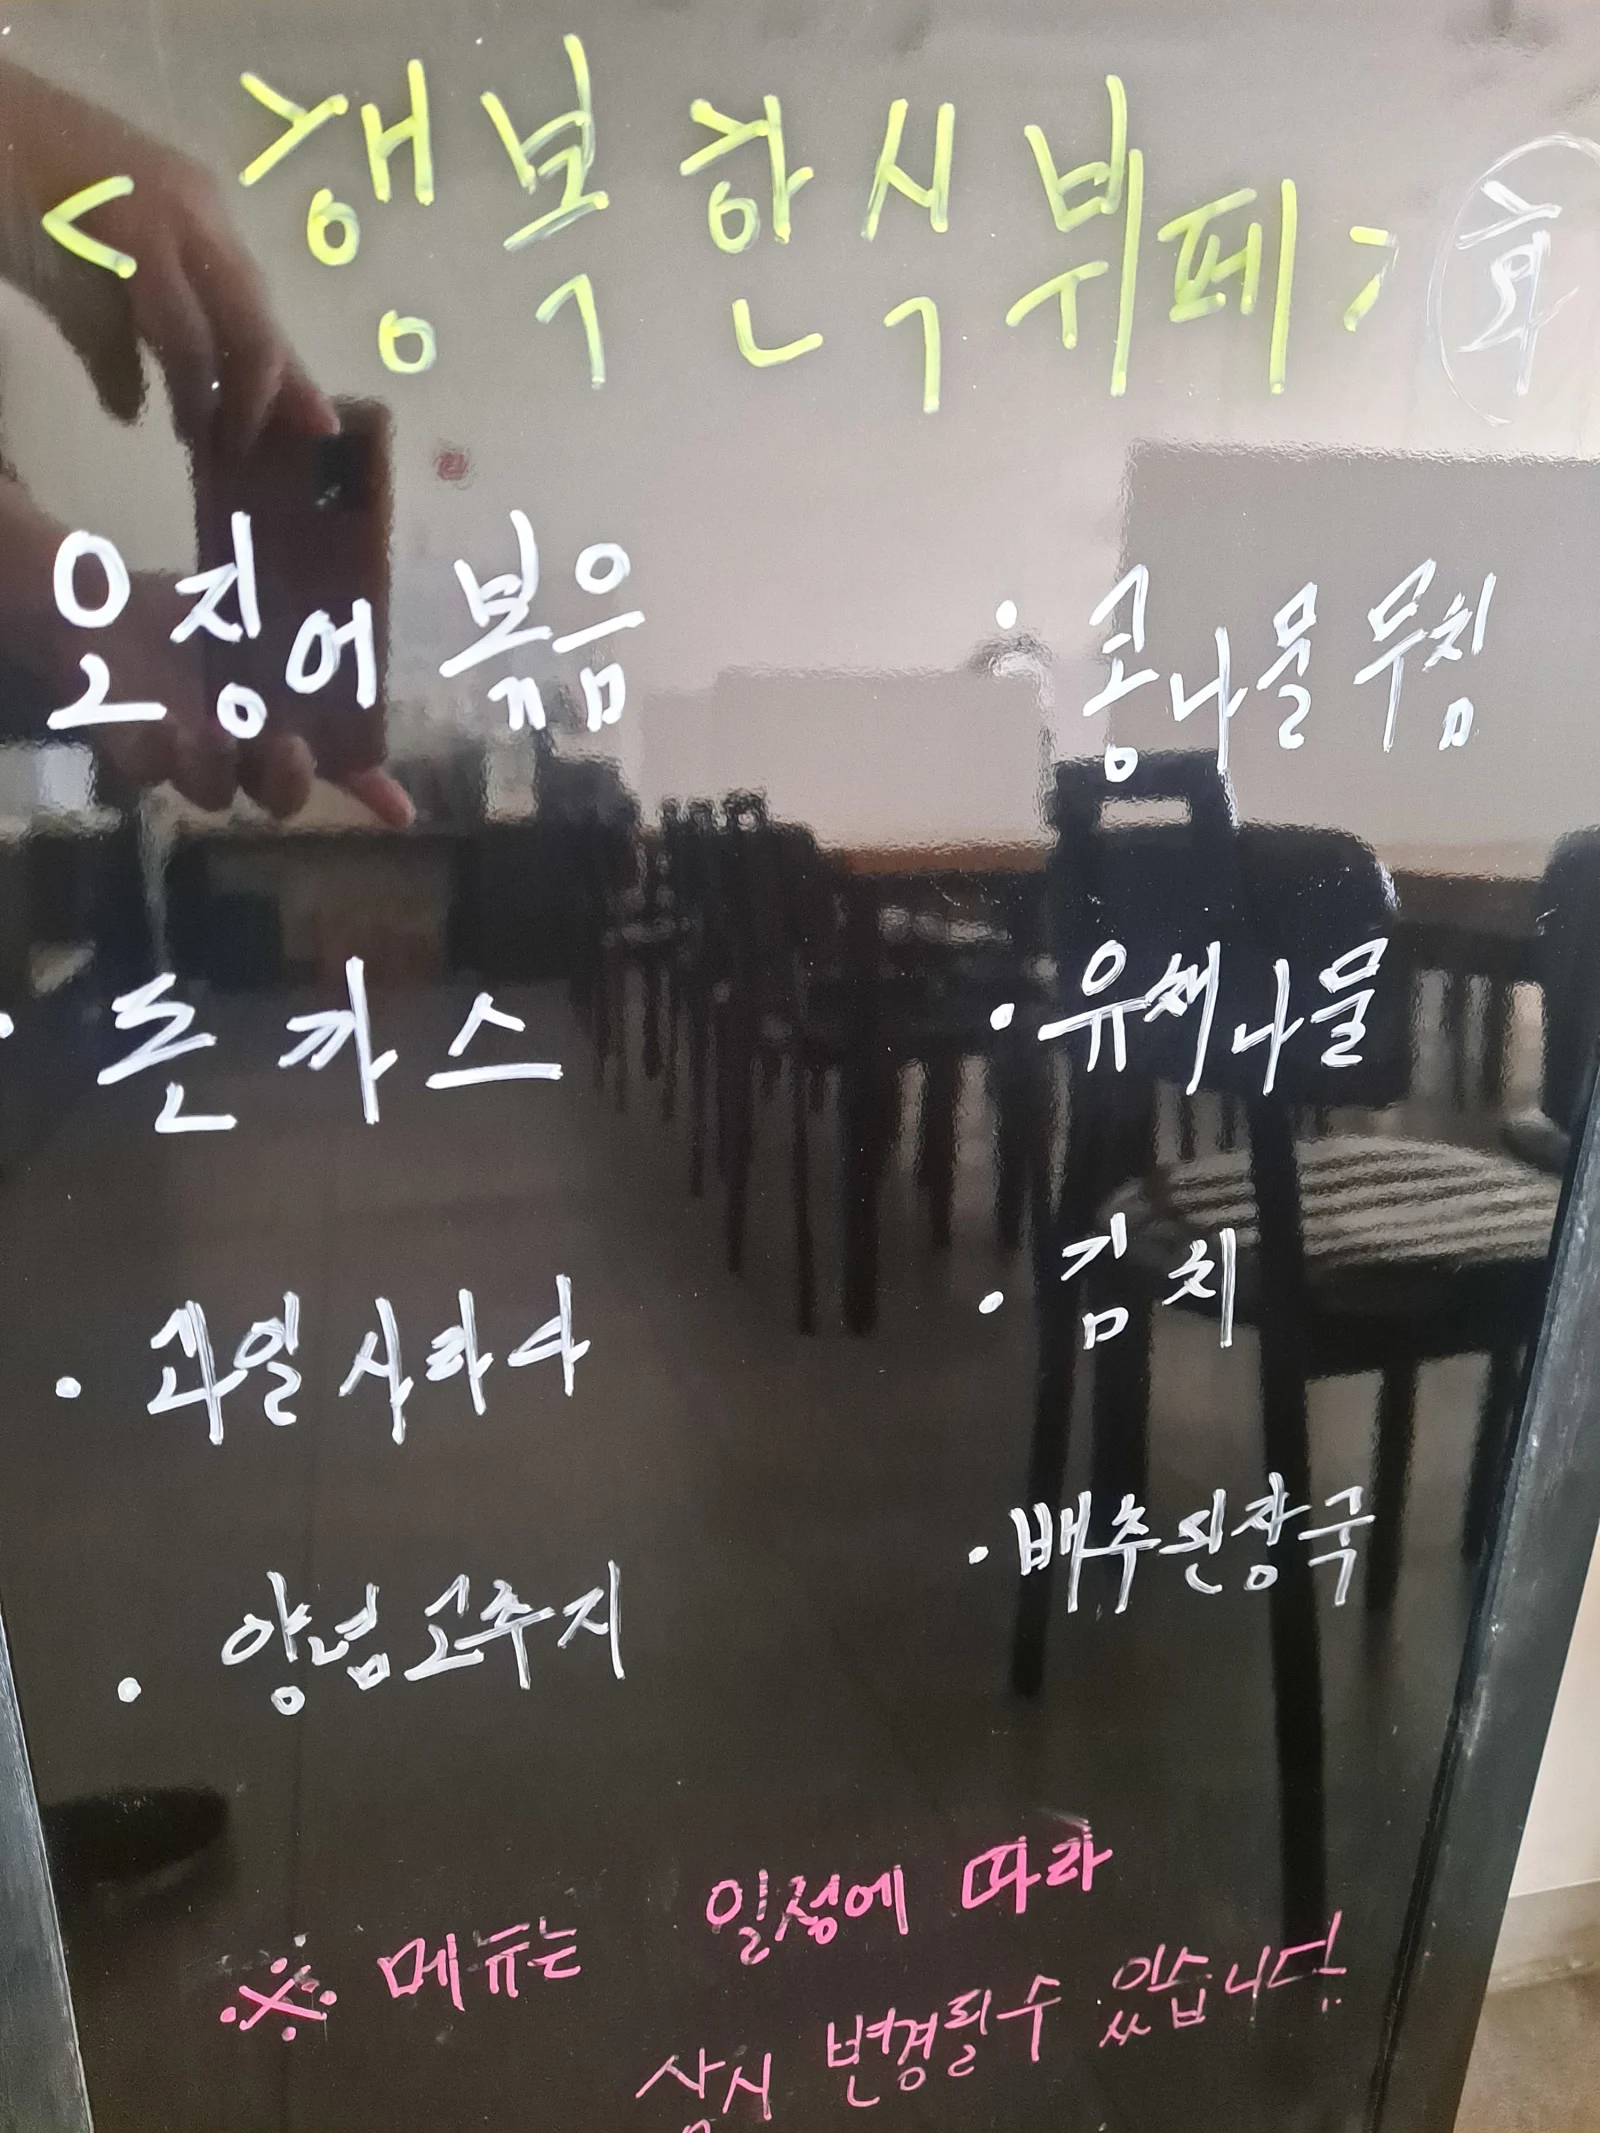 <행복한식뷔페> 화
오징어볶음
· 돈까스
· 과일사라다
· 양념고추지
· 콩나물무침
· 유채나물
· 김치
· 배추된장국
※ 메뉴는 일정에 따라
상시 변경될수 있습니다.